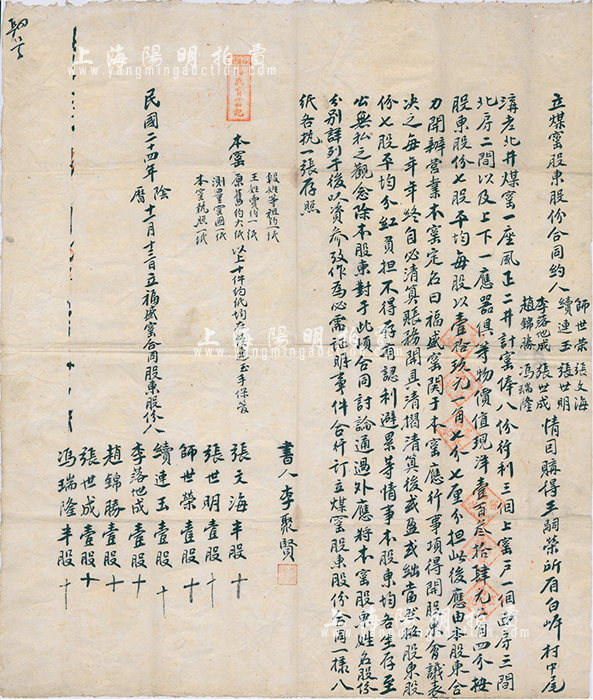 立煤窰股東股份合同約人
師世榮 張文海
續連玉 張世明
李落成 張世成
趙錦勝 馮瑞隆
情因購得王嗣榮所有白岍村中尾
溝老北井煤窰一座風正二井計窰俸八份行利三個上窰戸一個西房三間
北房二間以及上下一應器俱等物價值現洋壹百叁拾肆元二角四分按
股東股份七股平均每股以壹拾玖元一角七分七厘分担此後應由本股東合
力開辦營業本窰定名曰福盛窰関于本窰應行事項得開股東會議表
决之每年年終自必清算賬務開具清摺清算後或盈或絀當然按股東股
份七股平均分紅負担不得存有認利避累等情事本股東均各坐存至
公無私之觀念除本股東對于此項合同討論通過外應將本窰股東姓名股份
分别詳列于後以資參攷作為必需証賍事件合行訂立煤窰股東股份合同一樣八
紙各执一張存照
本窰
殷姓等租約一紙
王姓賣約一紙
原舊約六紙
測量窰圖一紙
本窰執照一紙
以上十件約紙均存續連玉手保管
書人 李聚賢
民國二十四年陰曆十一月十三日立福盛窰合同股東股份人
張文海半股 十
張世明壹股 十
師世榮壹股 十
續連玉壹股 十
李落成壹股 十
趙錦勝壹股 十
張世成壹股 十
馮瑞隆半股 十
上海陽明拍賣
www.yangmingauction.com
上海陽明拍賣
www.yangmingauction.com
上海陽明拍賣
www.yangmingauction.com